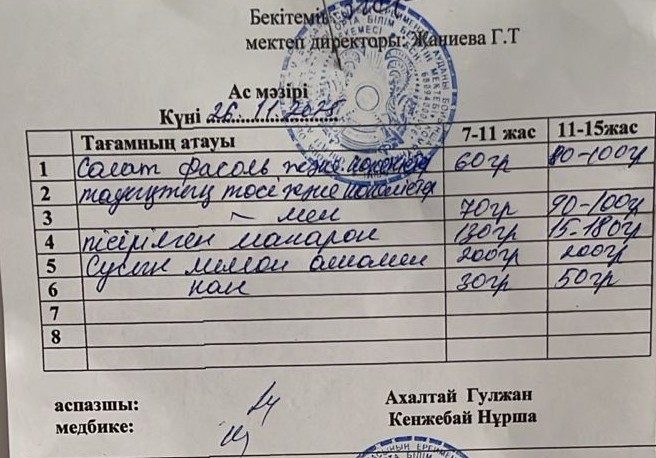 Бекітемін:
мектеп директоры: Жаниева Г.Т
Ас мәзірі
Күні 26.11.2025
Тағамның атауы 7-11 жас 11-15жас
1 Салат фасоль және 60гр 80-100гр
2 тауықтың төсі және
3 - мен 70гр 90-100гр
4 пісірілген макарон 130гр 15-180гр
5 Сусын лимон 200гр 200гр
6 нан 30гр 50гр
7
8
аспазшы: Ахалтай Гулжан
медбике: Кенжебай Нұрша